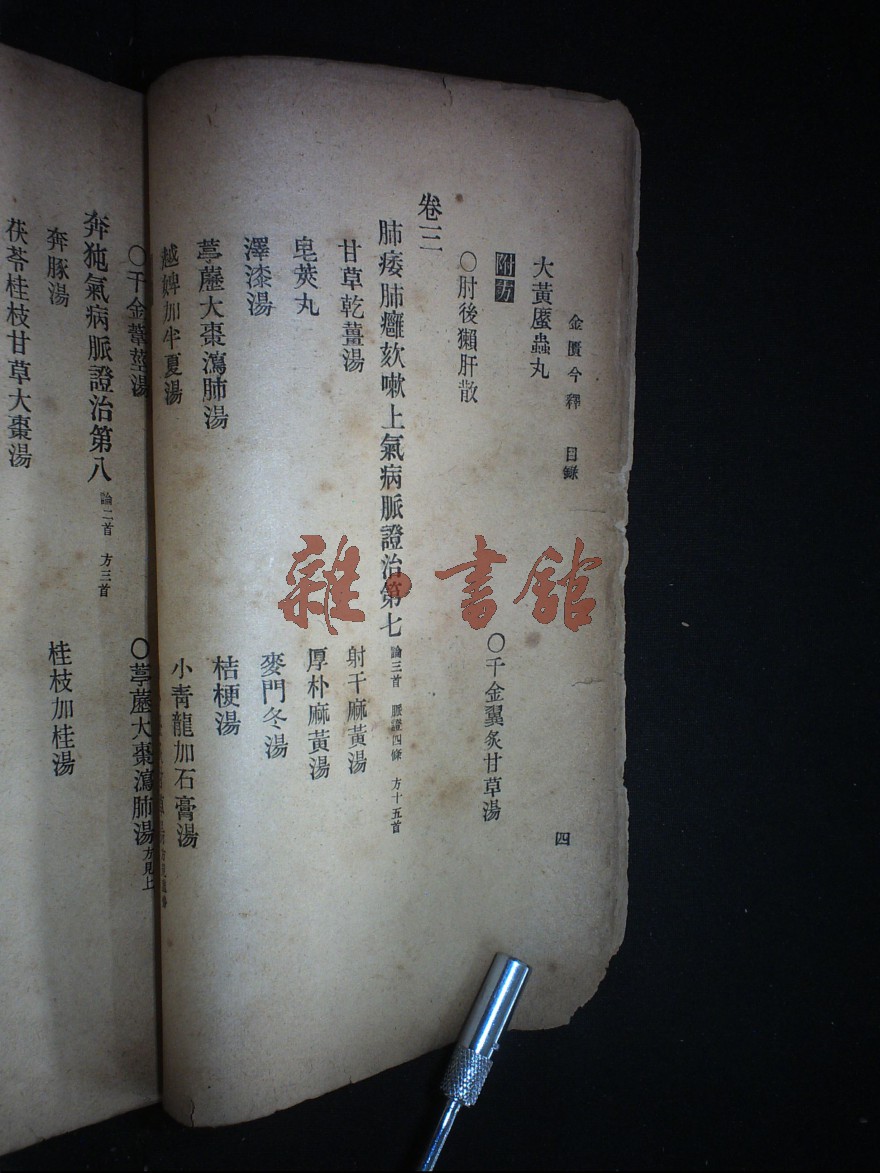 金匱今釋　目錄　四
大黃䗪蟲丸
附方
〇千金翼炙甘草湯
〇肘後獺肝散
卷三
肺痿肺癰欬嗽上氣病脈證治第七 論三首　脈證四條　方十五首
甘草乾薑湯　射干麻黃湯
皂莢丸　厚朴麻黃湯
澤漆湯　麥門冬湯
葶藶大棗瀉肺湯　桔梗湯
越婢加半夏湯　小青龍加石膏湯
〇千金葦莖湯　〇葶藶大棗瀉肺湯 方見上
奔㹠氣病脈證治第八 論二首　方三首
奔豚湯　桂枝加桂湯
茯苓桂枝甘草大棗湯
雜·書館